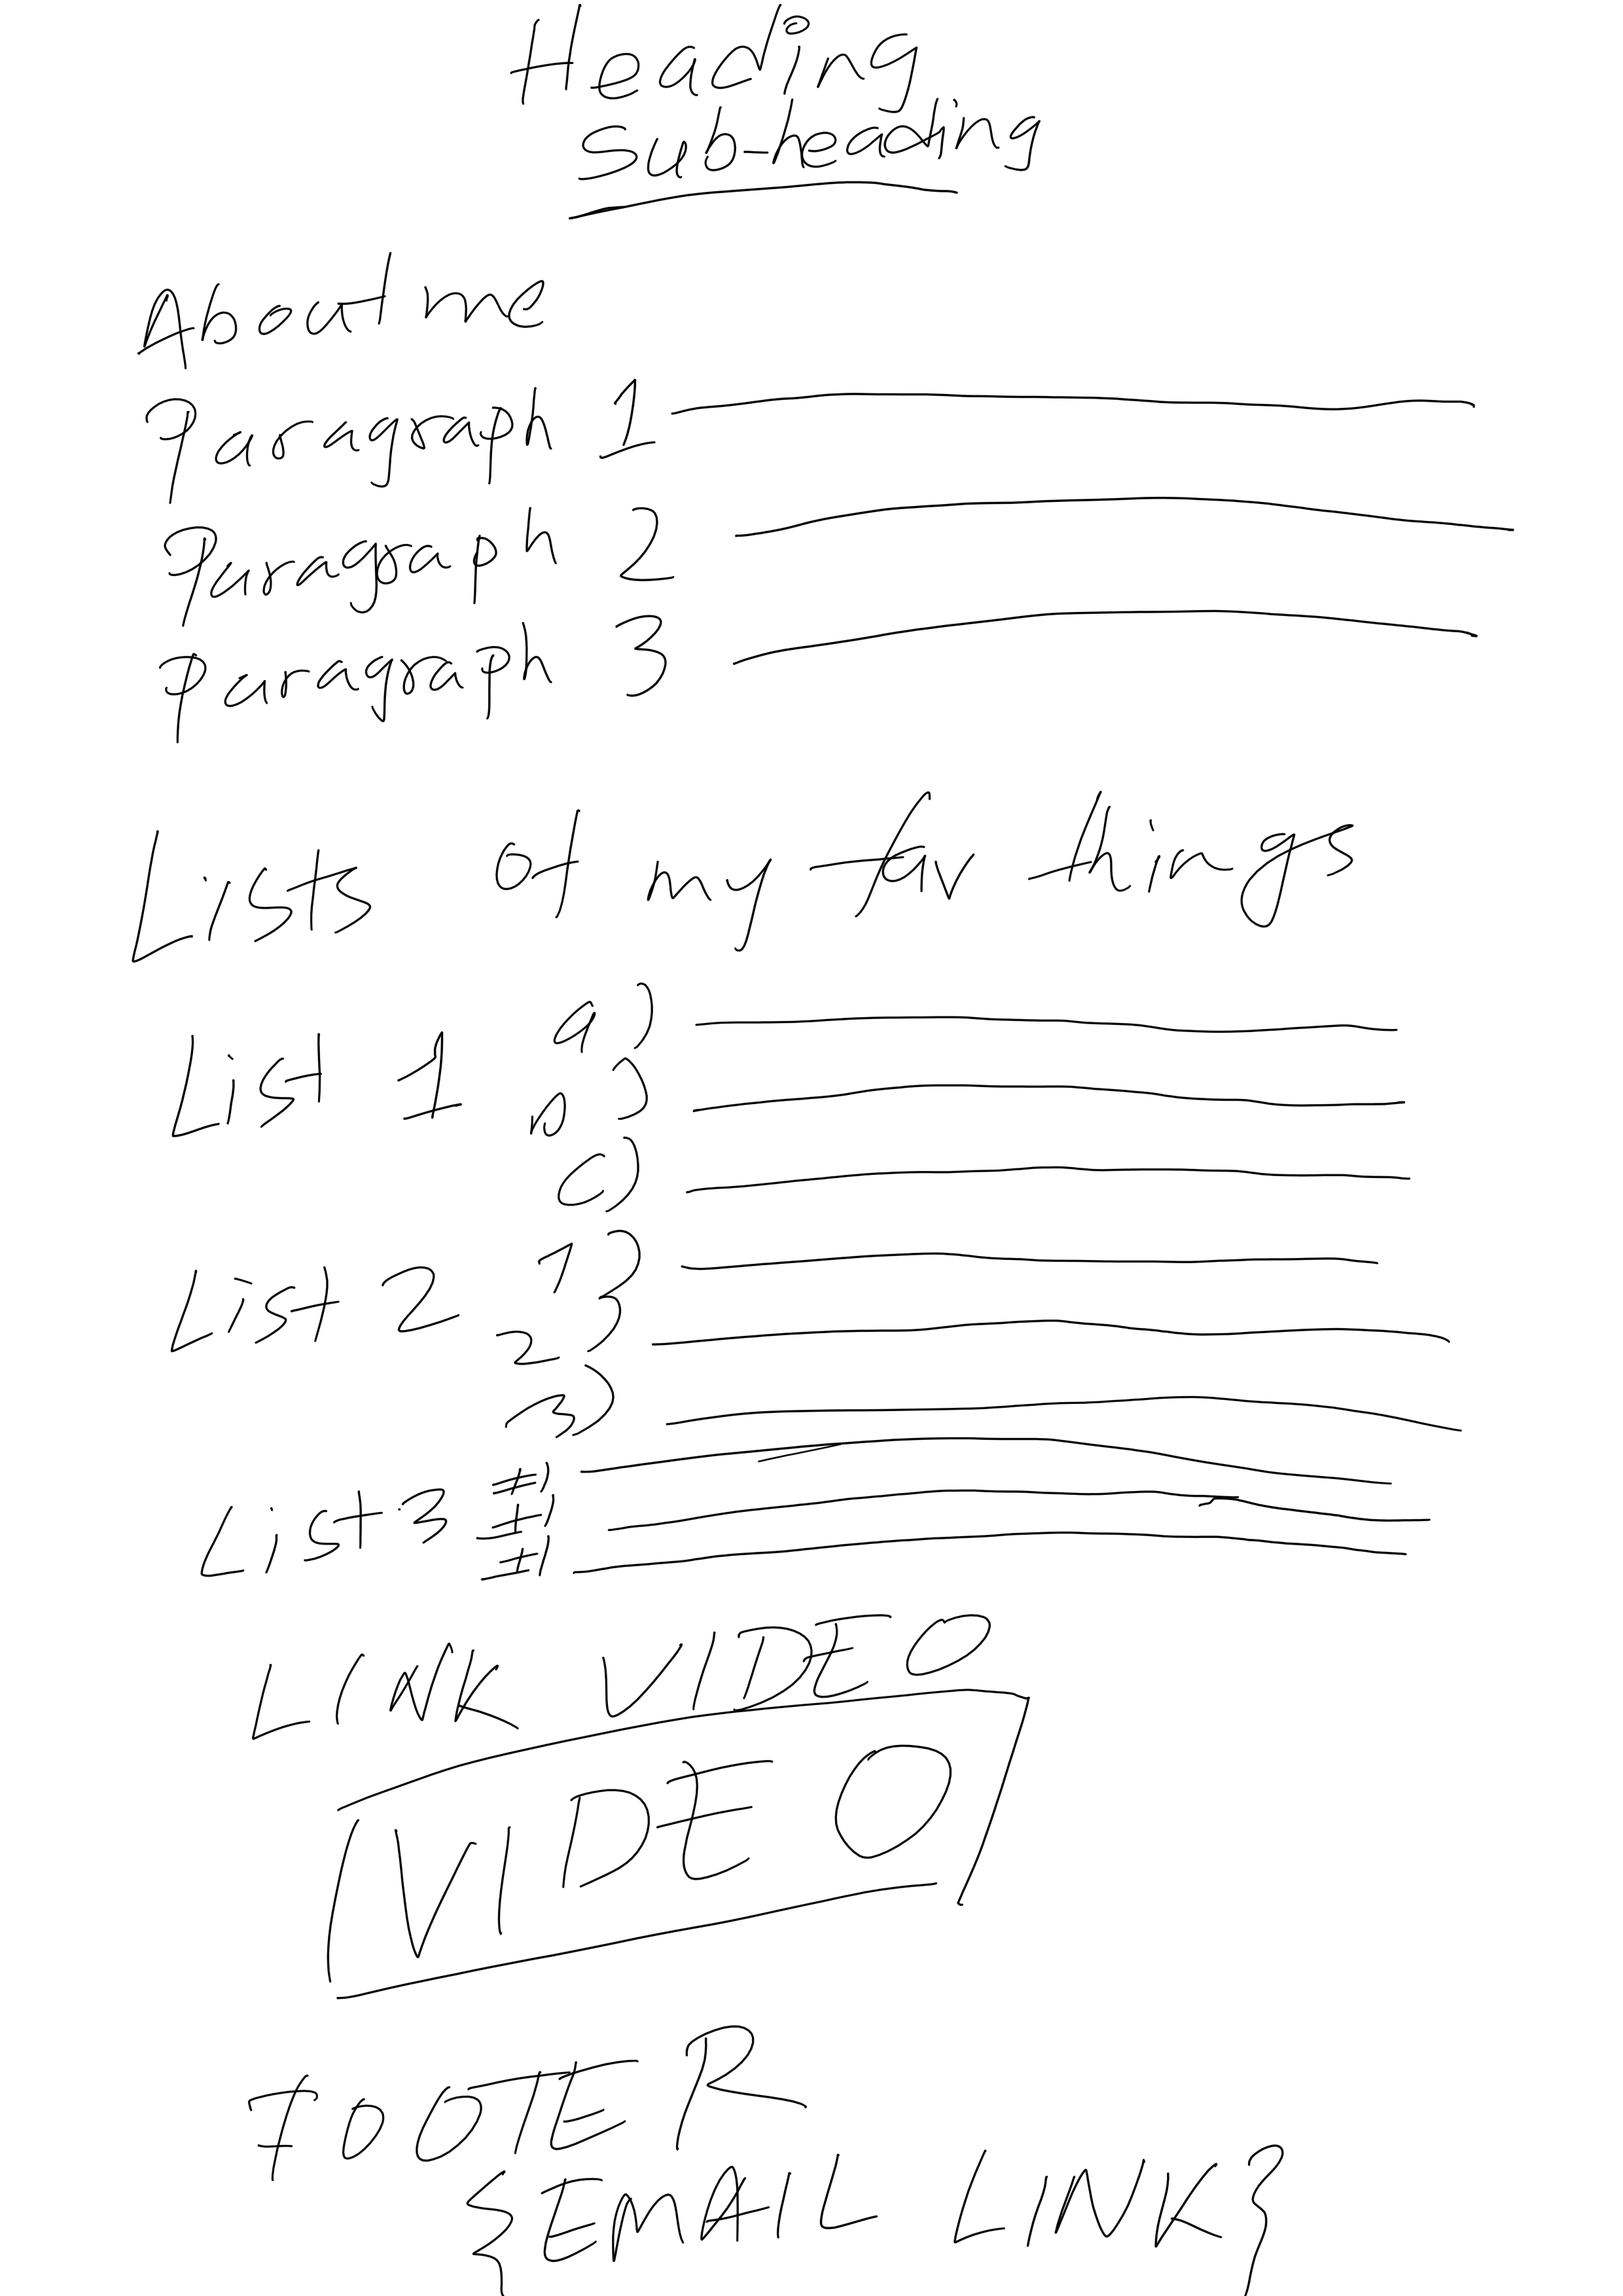 Heading
Sub-heading
About me
Paragraph 1
Paragraph 2
Paragraph 3
Lists of my fav things
List 1 a)
b)
c)
List 2 1)
2)
3)
List 3 #)
#)
#)
LINK VIDEO
VIDEO
FOOTER
{EMAIL LINK}